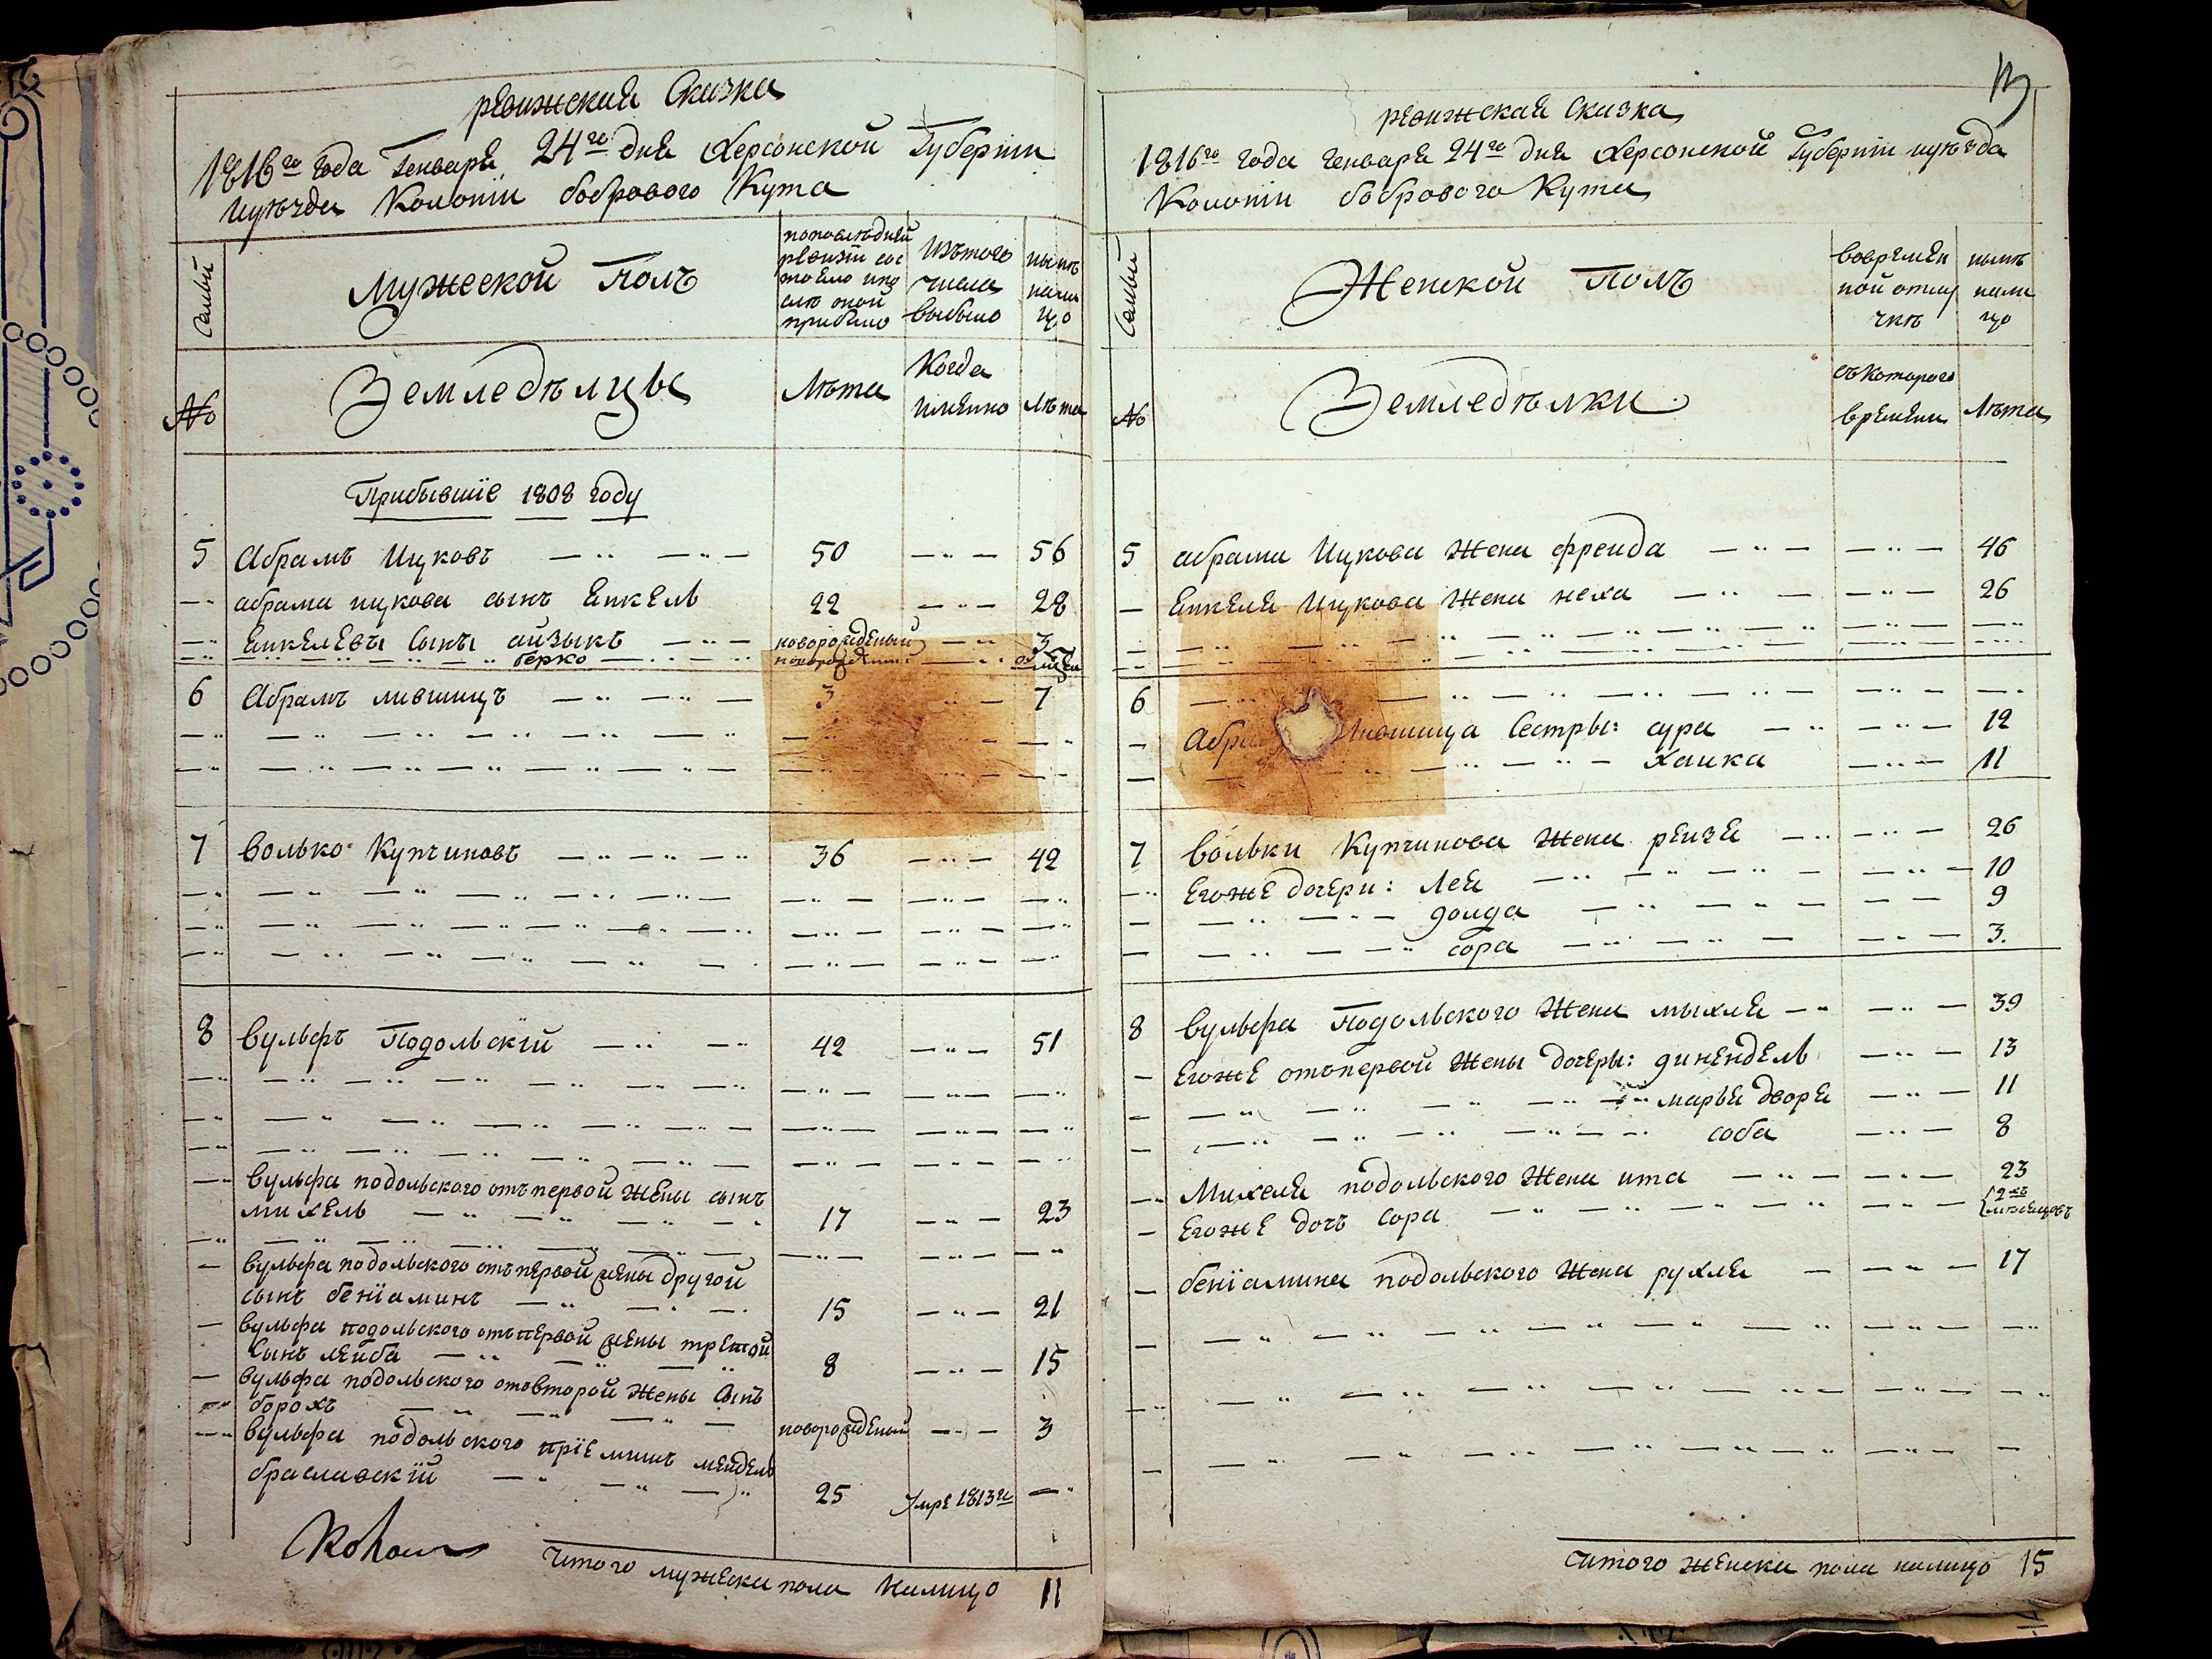 ревижская Сказка
1816го года Генваря 24го дня Херсонской Губернии
иуезда Колонiи бобрового Кута
Семьи
Мужеской Полъ
попоследней ревизiи состояло ипосле оной прибыло
Изътого числа выбыло
ныне налицо
№
Земледельцы
Лета
Когда имянно
Лета
Прибывшiе 1808 году
5 Абрамъ Ицковъ 50 56
абрама ицкова сынъ Янкель 22 28
Янкелевы Сыны айзыкъ новорожденый 3
берко новорожденый
6 Абрамъ лившицъ 3 7
7 Волько Купчиновъ 36 42
8 Вульфъ Подольскiй 42 51
Вульфа подольского отъпервой Жены сынъ
михель 17 23
Вульфа подольского отъпервой жены другой
сынъ бенiаминъ 15 21
Вульфа подольского отъпервой жены третой
Сынъ лейба 8 15
Вульфа подольского отовторой Жены Сынъ
борохъ новорожденый 3
Вульфа подольского прiемышъ мендель
браславскiй 25 Умре 1813го
Итого мужеска пола налицо 11
ревижская Сказка
1816го года Генваря 24го дня Херсонской Губернiи иуезда
Колонiи бобрового Кута
Семьи
Женской Полъ
вовременной отлучке
ныне налицо
№
Земледелки
съкоторого времени
Лета
5 абрама Ицкова Жена фрейда 46
Янкеля Ицкова Жена неха 26
6
Абра Лившица Сестры: сура 12
Хайка 11
7 Вольки Купчинова Жена рейзя 26
Егоже дочери: Лея 10
9
сора 3.
8 Вульфа Подольского Жена мыхля 39
Егоже отопервой Жены дочеры: 13
марья дворя 11
соба 8
Михеля подольского Жена ита 23
Егоже дочь Сора 2хъ месяцовъ
бенiамина подольского Жена рухля 17
Итого женска пола налицо 15